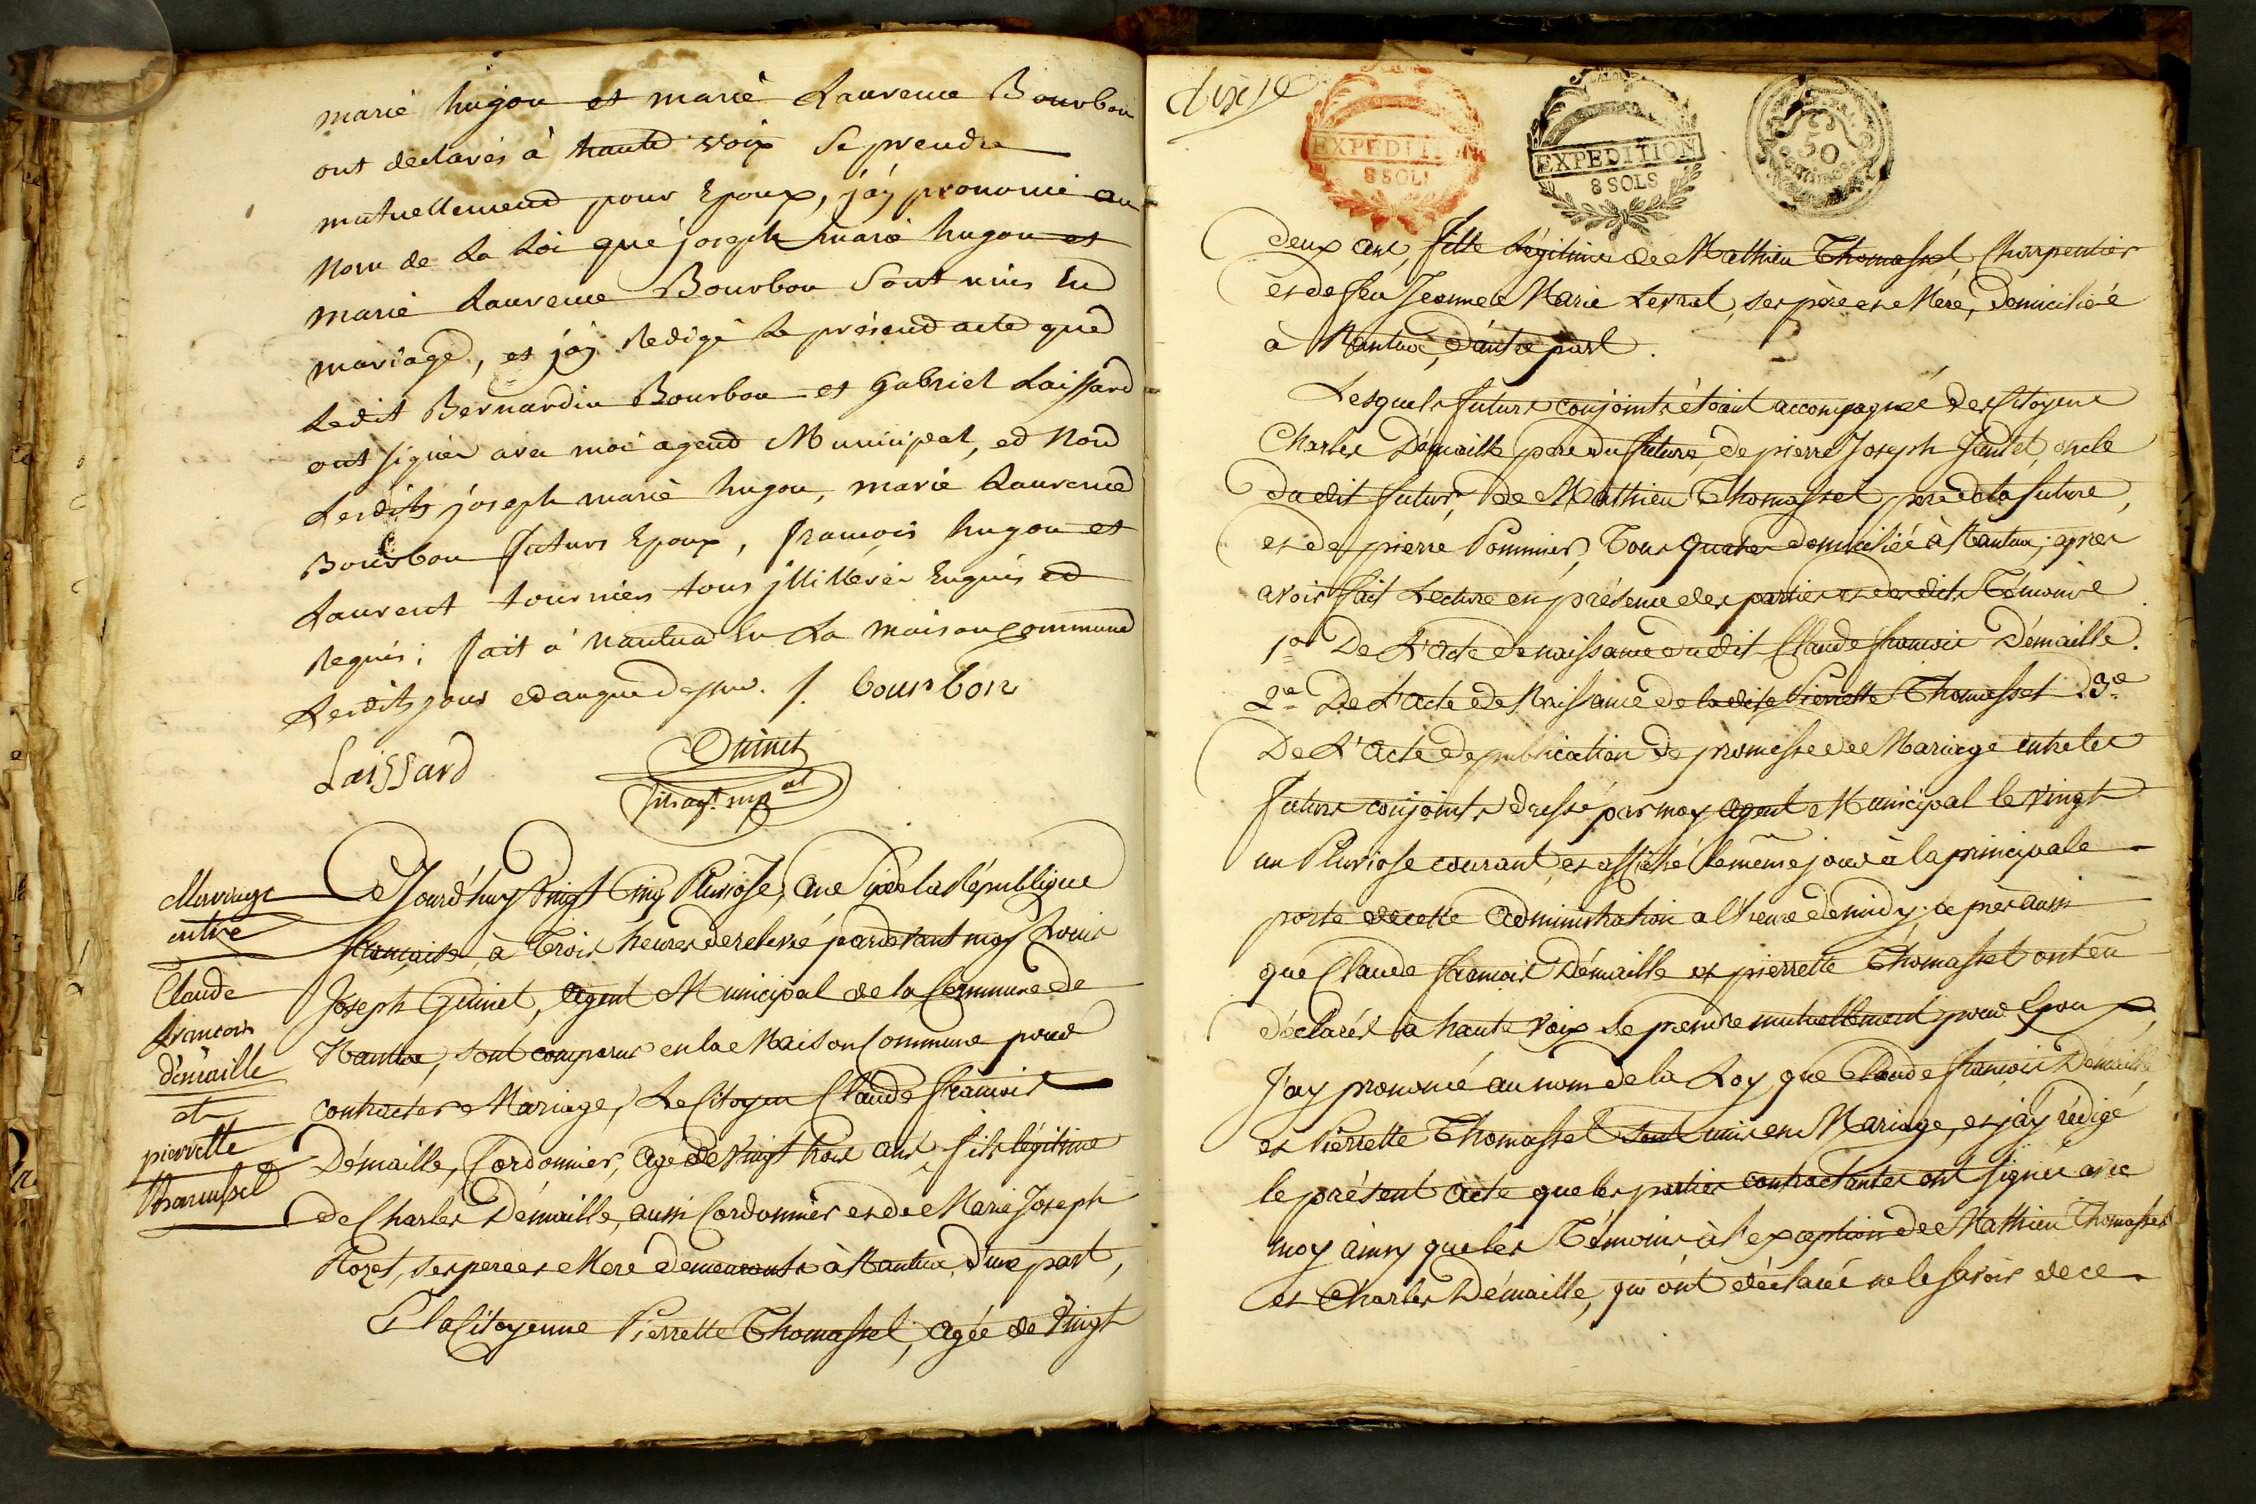 marie hugon et marie Laurence Bourbon
ont declarés à haute voix se prendre
mutuellement pour Epoux, j'ay prononcé au
nom de la Loi que joseph marie hugon et
marie Laurence Bourbon sont unis en
mariage, et j'ay Redigé le présend acte que
Ledit Bernardin Bourbon et Gabriel Laissard
ont signés avec moi agend Municipal, ed non
Lesdits joseph marie hugon, marie Laurence
Bourbon futurs Epoux, françois hugon et
Laurent tournier tous illiterés Enquis ed
Requis; fait à nantua En La maison commune
Lesdits jour ed an que dessus. f. bourbon
Laissard
Guinet
agt. mpal
Mariage
entre
Claude
françois
démaille
et
pierrette
thomasset
Ce Jourd'huy Vingt Cinq Pluviose, an Six de la République
française, à Trois heures de relevé pardevant moy Louis
Joseph Guinet, Agent Municipal de la Commune de
Nantua, sont comparus en la Maison Commune pour
contracter Mariage, Le Citoyen Claude François
Démaille, Cordonnier, agé de vingt trois ans, fils légitime
de Charles Démaille, aussi Cordonnier et de Marie Joseph
ses pere et Mere demeurants à Nantua, d'une part,
Et la Citoyenne Pierrette Thomasset, agée de Vingt
EXPEDITION
8 SOLS
EXPEDITION
8 SOLS
50
centimes
deux ans, fille légitime de Mathieu Thomasset Charpentier
et de feu Jeanne Marie Levrat, ses père et Mère, Domiciliée
à Nantua, d'autre part.
Lesquels futurs conjoints étoient accompagnés des Citoyens
Charles Démaille pere du futur, de pierre Joseph Jantet, oncle
du dit futur, de Mathieu Thomasset pere de la future,
et de pierre Pommier, Tous quatre domiciliés à Nantua; après
avoir fait Lecture en présence des parties et desdits Témoins
1o De L'acte de naissance du dit Claude françois Démaille.
2e De L'acte de Naissance de la dite Pierrette Thomasset 3e
De L'acte de publication de promesse de Mariage entre les
futurs conjoints dressé par moy agent Municipal le vingt
un Pluviose courant, et affiché le même jour à la principale
porte de cette Administration a l'heure de midy; après aussi
que Claude françois Démaille et pierrette Thomasset ont eu
déclarés à haute voix se prendre mutuellement pour Epoux,
J'ay prononcé au nom de la Loy que Claude françois Démaille
et Pierrette Thomasset sont unis en Mariage, et j'ay rédigé
le présent acte que les parties contractantes ont signés avec
moy ainsy que les Témoins à l'exception de Mathieu Thomasset
et Charles Démaille, qui ont déclaré ne le savoir de ce